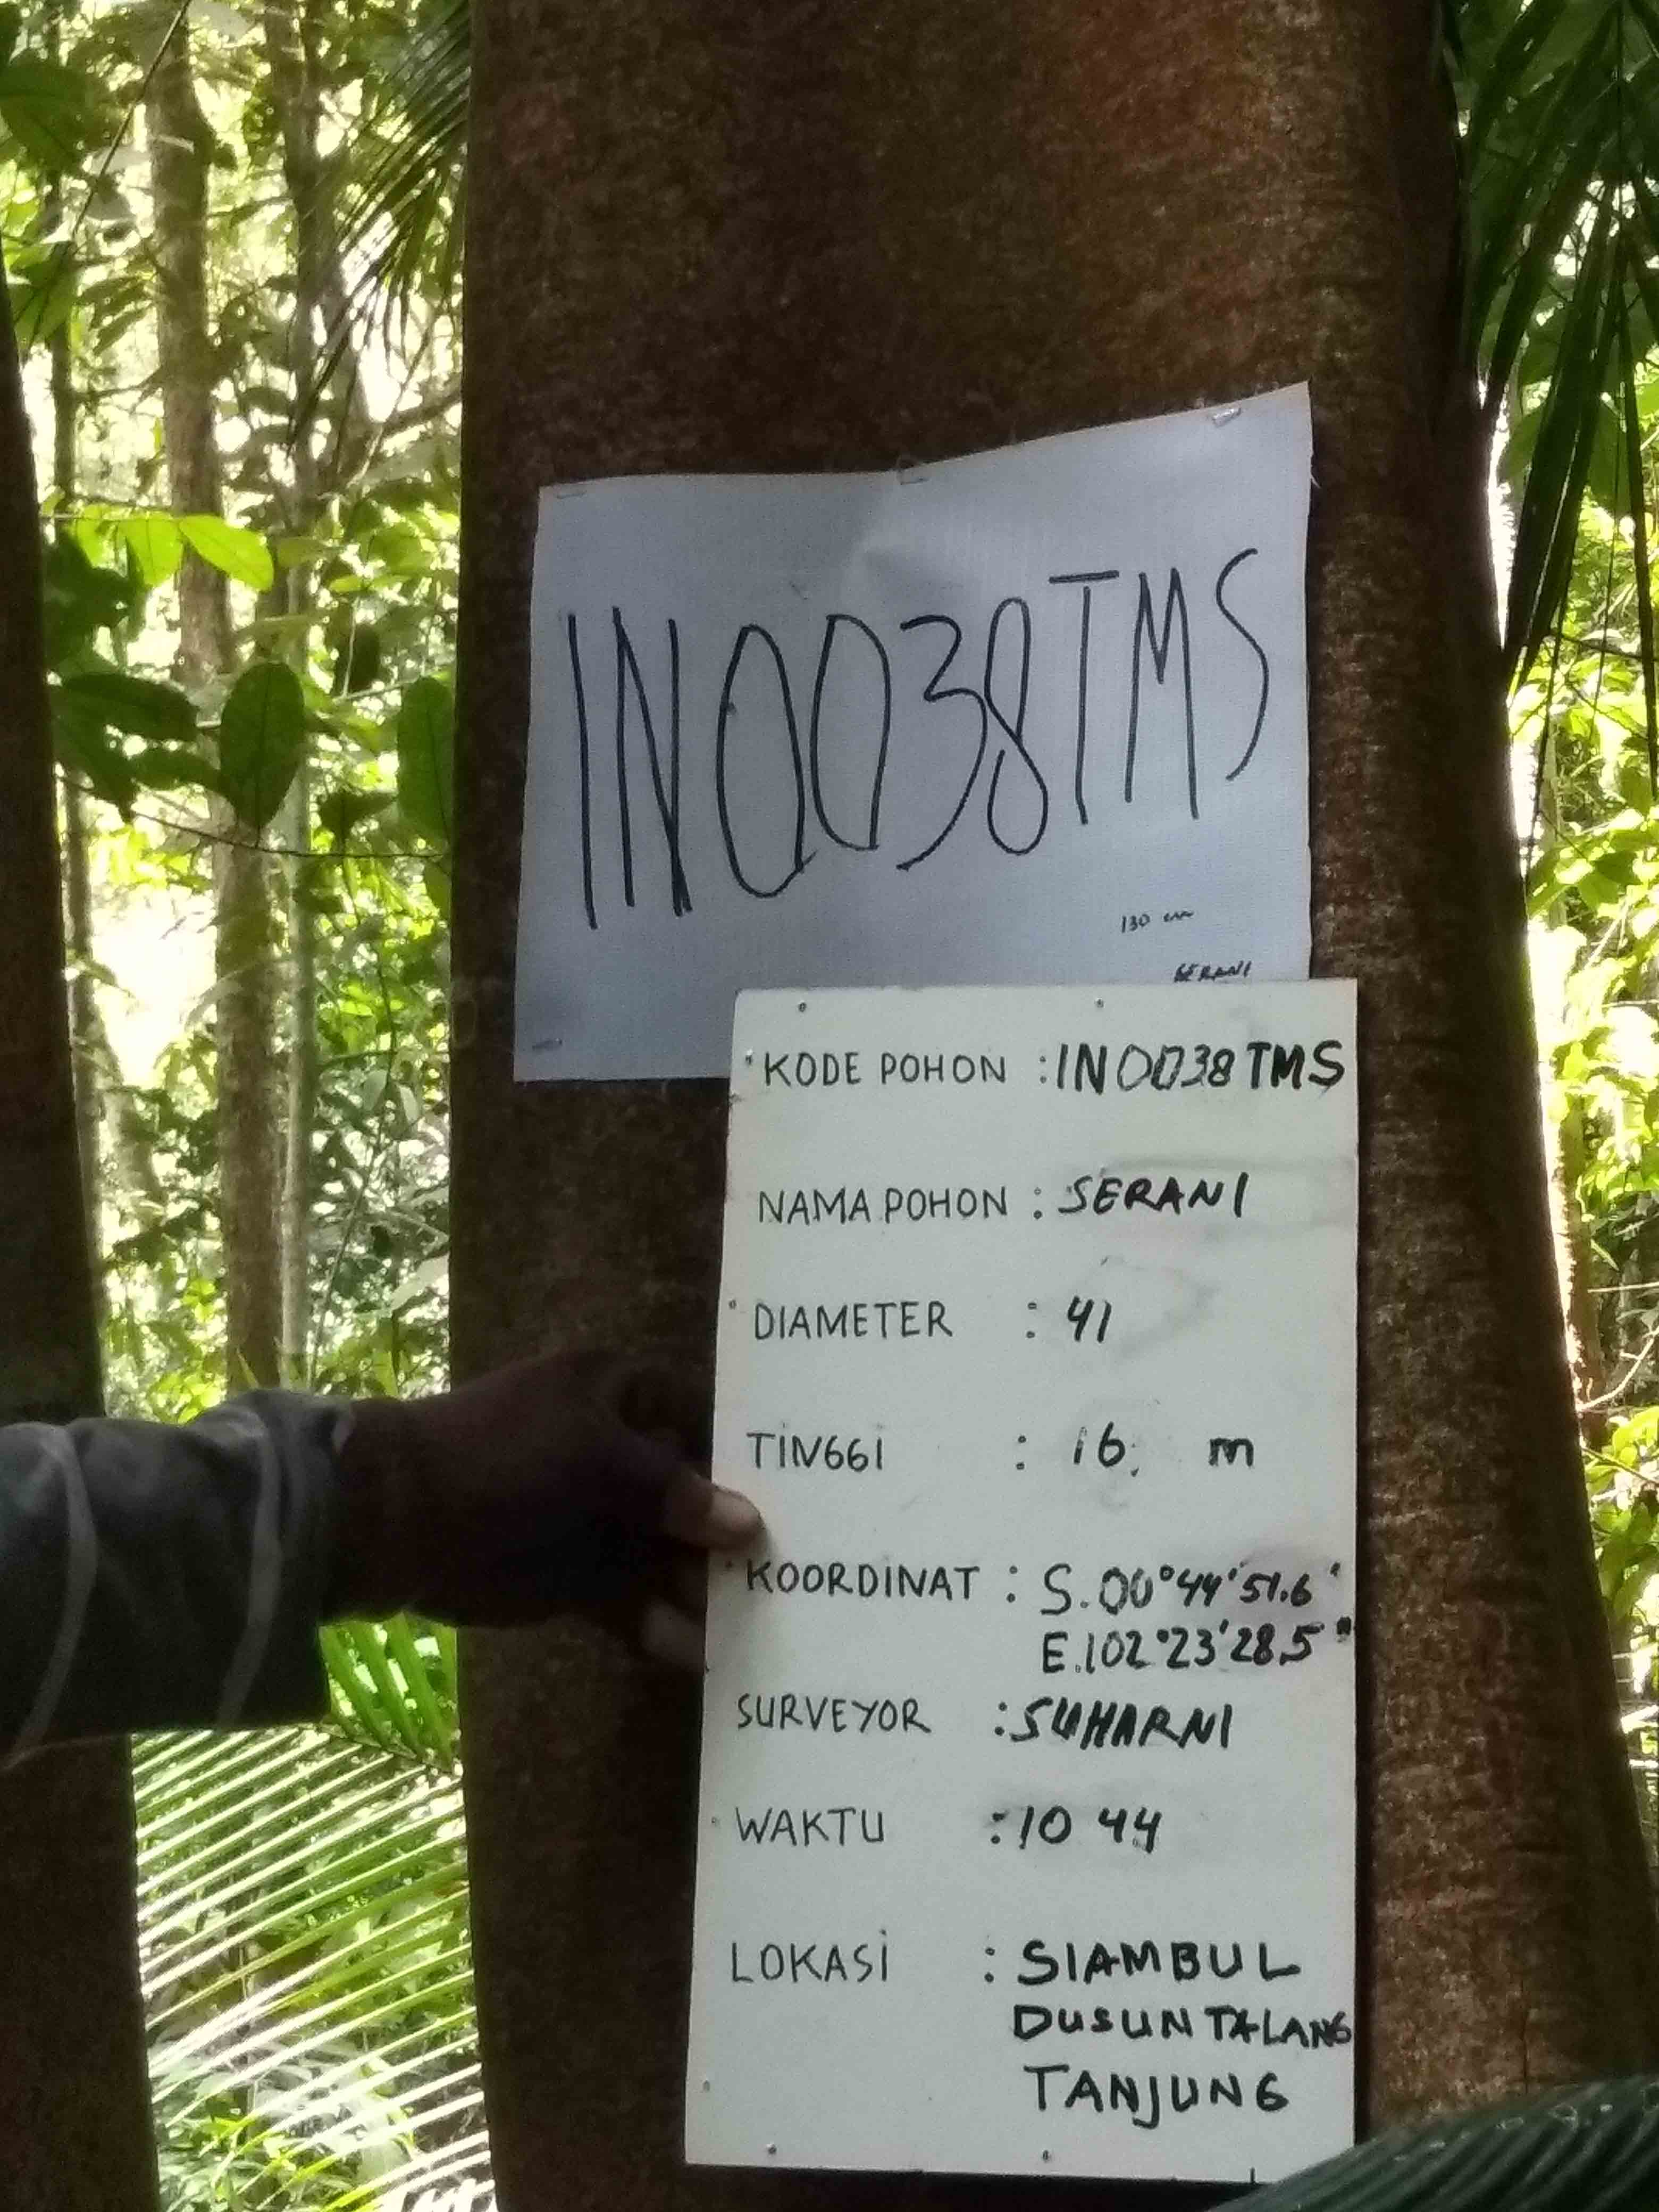 IN0038TMS
130 cm
SERANI
KODE POHON : IN0038TMS
NAMA POHON : SERANI
DIAMETER : 41
TINGGI : 16. m
KOORDINAT : S.00°44'51.6'
E.102°23'28.5"
SURVEYOR : SUHARNI
WAKTU : 10 44
LOKASI : SIAMBUL
DUSUN TALANG
TANJUNG